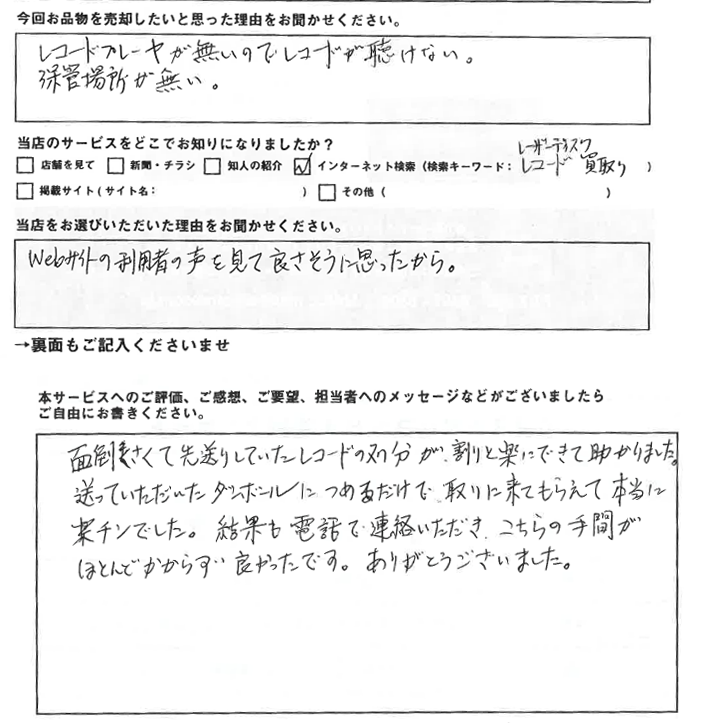 今回お品物を売却したいと思った理由をお聞かせください。
レコードプレーヤが無いのでレコードが聴けない。
保管場所が無い。
当店のサービスをどこでお知りになりましたか？
□ 店舗を見て □ 新聞・チラシ □ 知人の紹介 ☑ インターネット検索（検索キーワード：レーザーディスク レコード 買取り ）
□ 掲載サイト（サイト名： ） □ その他（ ）
当店をお選びいただいた理由をお聞かせください。
Webサイトの利用者の声を見て良さそうに思ったから。
→裏面もご記入くださいませ
本サービスへのご評価、ご感想、ご要望、担当者へのメッセージなどがございましたら
ご自由にお書きください。
面倒くさくて先送りしていたレコードの処分が、割りと楽にできて助かりました。
送っていただいたダンボールにつめるだけで、取りに来てもらえて本当に
楽チンでした。結果も電話で連絡いただき、こちらの手間が
ほとんどかからずい良かったです。ありがとうございました。